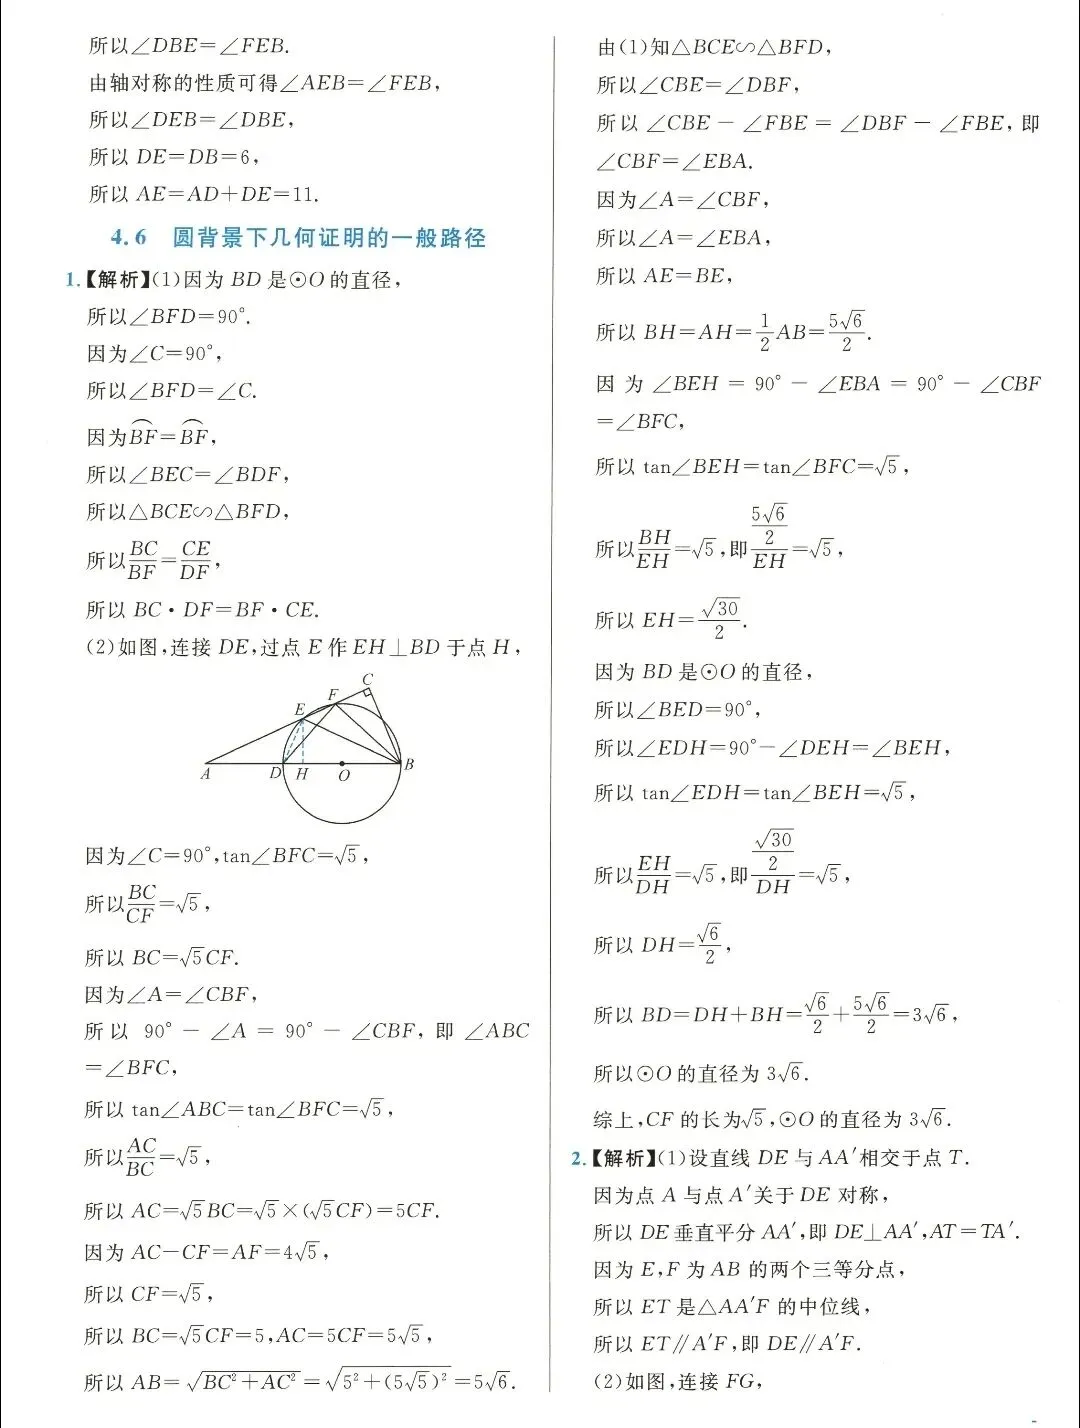 所以∠DBE=∠FEB.
由轴对称的性质可得∠AEB=∠FEB,
所以∠DEB=∠DBE,
所以 DE=DB=6,
所以 AE=AD+DE=11.
4.6 圆背景下几何证明的一般路径
1.【解析】(1)因为 BD 是⊙O 的直径,
所以∠BFD=90°.
因为∠C=90°,
所以∠BFD=∠C.
因为⌒BF=⌒BF,
所以∠BEC=∠BDF,
所以△BCE∽△BFD,
所以BC/BF=CE/DF,
所以 BC·DF=BF·CE.
(2)如图,连接 DE,过点 E 作 EH⊥BD 于点 H,
C
F
E
A D H O B
因为∠C=90°,tan∠BFC=√5,
所以BC/CF=√5,
所以 BC=√5CF.
因为∠A=∠CBF,
所以 90°-∠A=90°-∠CBF,即∠ABC
=∠BFC,
所以 tan∠ABC=tan∠BFC=√5,
所以AC/BC=√5,
所以 AC=√5BC=√5×(√5CF)=5CF.
因为 AC-CF=AF=4√5,
所以 CF=√5,
所以 BC=√5CF=5,AC=5CF=5√5,
所以 AB=√(BC²+AC²)=√(5²+(5√5)²)=5√6.
由(1)知△BCE∽△BFD,
所以∠CBE=∠DBF,
所以∠CBE-∠FBE=∠DBF-∠FBE,即
∠CBF=∠EBA.
因为∠A=∠CBF,
所以∠A=∠EBA,
所以 AE=BE,
所以 BH=AH=1/2AB=5√6/2.
因为∠BEH=90°-∠EBA=90°-∠CBF
=∠BFC,
所以 tan∠BEH=tan∠BFC=√5,
所以BH/EH=√5,即(5√6/2)/EH=√5,
所以 EH=√30/2.
因为 BD 是⊙O 的直径,
所以∠BED=90°,
所以∠EDH=90°-∠DEH=∠BEH,
所以 tan∠EDH=tan∠BEH=√5,
所以EH/DH=√5,即(√30/2)/DH=√5,
所以 DH=√6/2,
所以 BD=DH+BH=√6/2+5√6/2=3√6,
所以⊙O 的直径为 3√6.
综上,CF 的长为√5,⊙O 的直径为 3√6.
2.【解析】(1)设直线 DE 与 AA′相交于点 T.
因为点 A 与点 A′关于 DE 对称,
所以 DE 垂直平分 AA′,即 DE⊥AA′,AT=TA′.
因为 E,F 为 AB 的两个三等分点,
所以 ET 是△AA′F 的中位线,
所以 ET∥A′F,即 DE∥A′F.
(2)如图,连接 FG,